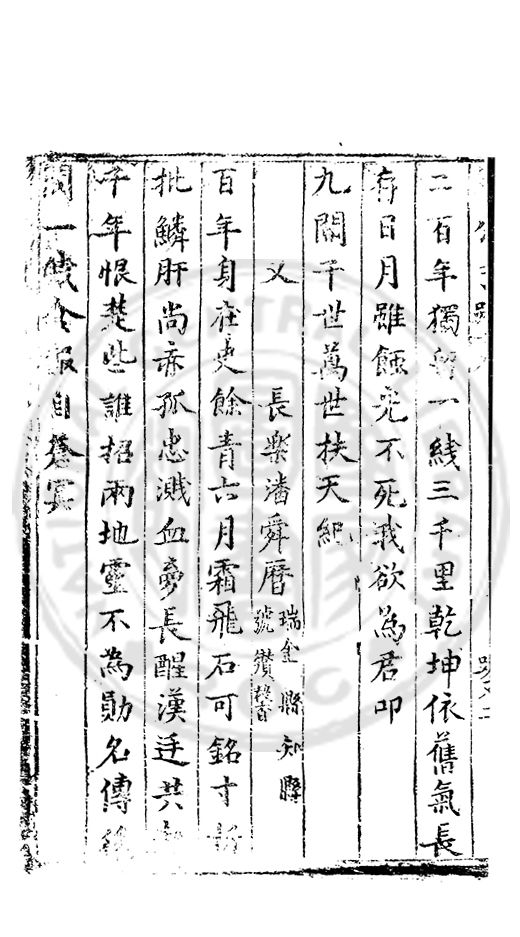 二百年獨留一綫三千里乾坤依舊氣長
存日月雖蝕光不死我欲為君叩
九關千世萬世扶天紀
又 長樂潘舜曆 瑞金縣知縣號鑽
百年身在史餘青六月霜飛石可銘寸
批鱗肝尚赤孤忠濺血夢長醒漢廷共
千年恨楚些誰招兩地靈不為勛名傳
間一綫合 自蒼冥